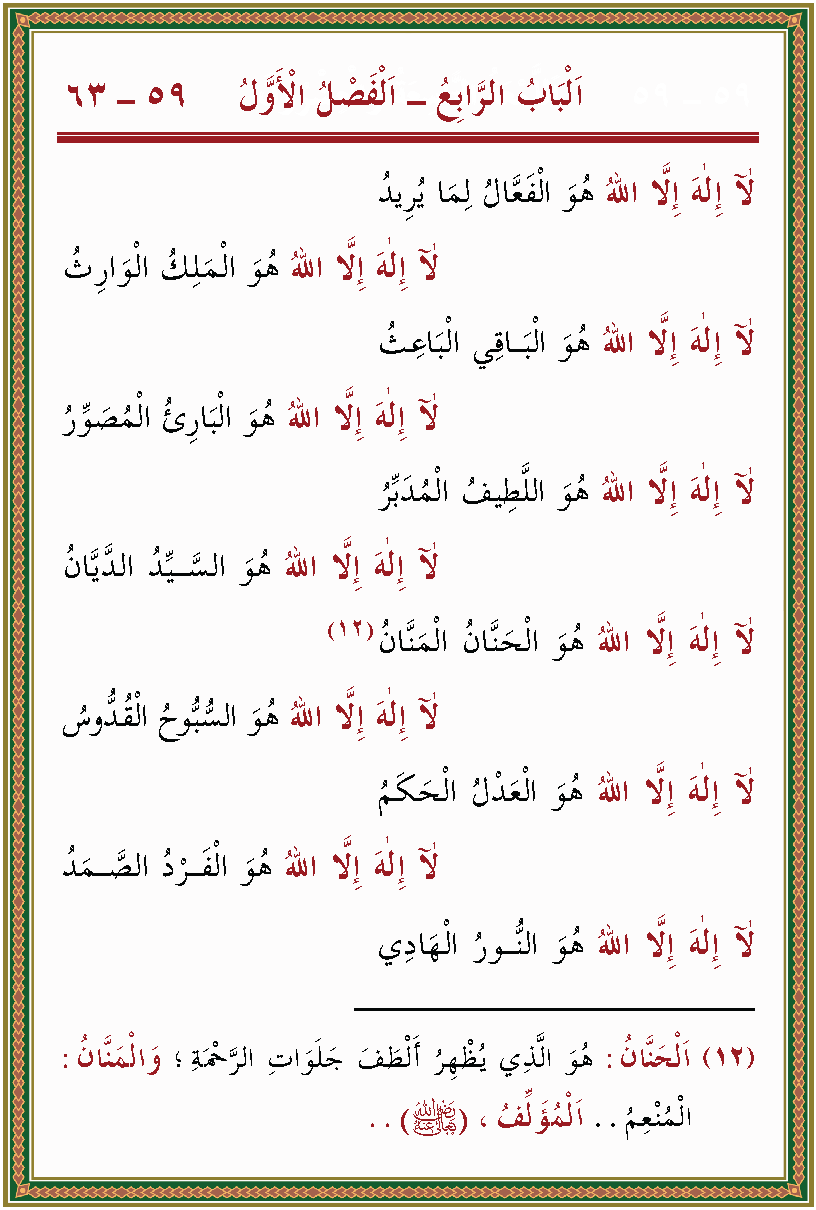 اَلْبَابُ الرَّابِعُ – اَلْفَصْلُ الْأَوَّلُ ٥٩ – ٦٣
لَآ إِلٰهَ إِلَّا اللهُ هُوَ الْفَعَّالُ لِمَا يُرِيدُ
لَآ إِلٰهَ إِلَّا اللهُ هُوَ الْمَلِكُ الْوَارِثُ
لَآ إِلٰهَ إِلَّا اللهُ هُوَ الْبَـاقِي الْبَاعِثُ
لَآ إِلٰهَ إِلَّا اللهُ هُوَ الْبَارِئُ الْمُصَوِّرُ
لَآ إِلٰهَ إِلَّا اللهُ هُوَ اللَّطِيفُ الْمُدَبِّرُ
لَآ إِلٰهَ إِلَّا اللهُ هُوَ السَّـيِّدُ الدَّيَّانُ
لَآ إِلٰهَ إِلَّا اللهُ هُوَ الْحَنَّانُ الْمَنَّانُ (١٢)
لَآ إِلٰهَ إِلَّا اللهُ هُوَ السُّبُّوحُ الْقُدُّوسُ
لَآ إِلٰهَ إِلَّا اللهُ هُوَ الْعَدْلُ الْحَكَمُ
لَآ إِلٰهَ إِلَّا اللهُ هُوَ الْفَـرْدُ الصَّـمَدُ
لَآ إِلٰهَ إِلَّا اللهُ هُوَ النُّـورُ الْهَادِي
(١٢) اَلْحَنَّانُ : هُوَ الَّذِي يُظْهِرُ أَلْطَفَ جَلَوَاتِ الرَّحْمَةِ ؛ وَالْمَنَّانُ :
الْمُنْعِمُ . . اَلْمُؤَلِّفُ ، (رضي الله تعالى عنه) . .